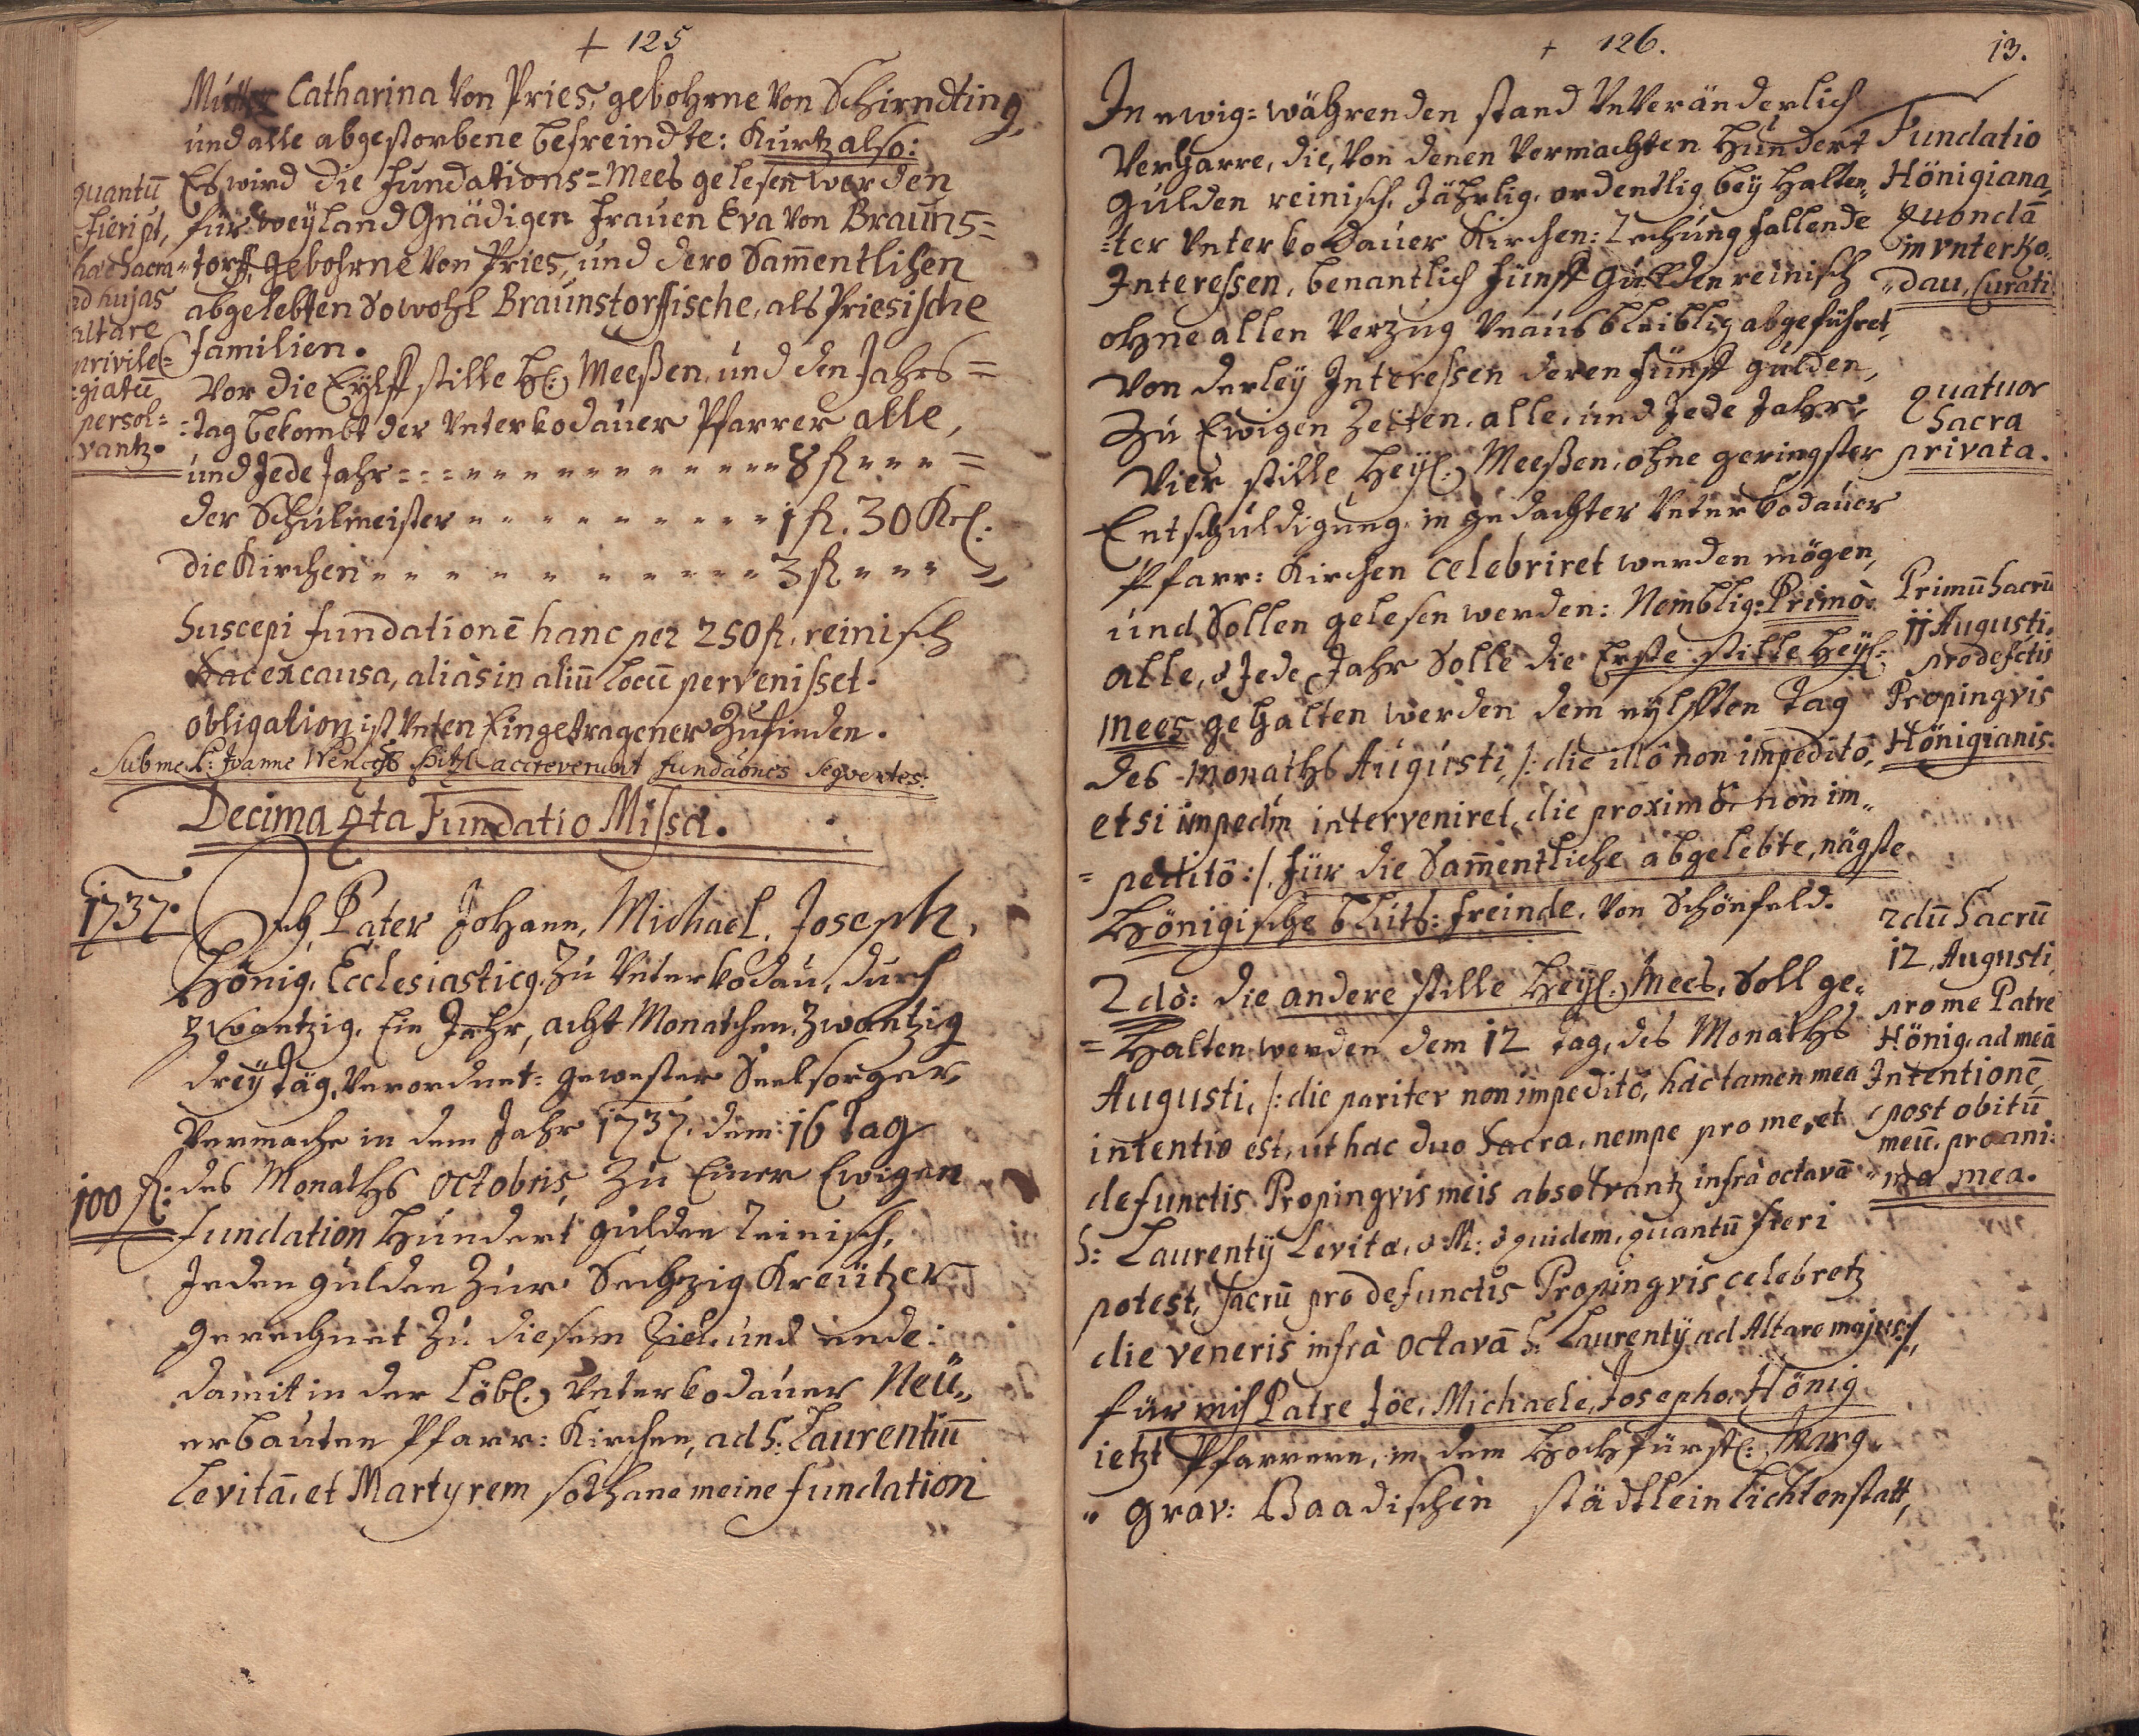 + 125
Mutter Catharina Von Pries, gebohrne Von Schirndting
und alle abgestorbene befreindte: Kurtz also:
Es wird die Fundations=Mees gelesen werden
für weyland Gnädigen Frauen Eva von Brauns=
=torff, gebohrne Von Pries, und dero Sam̄entlichen
abgelebten Sowohl Braunstorffische, als Priesische
Familien.
quantū
fieri pt,
haec sacra
ad hujas
altare
privile=
=giatū
persol=
vantz.
Vor die Eylff stille H: Meeßen, und den Jahrs=
=tag bekombt der Unterkodauer Pfarrer alle,
und Jede Jahr = = = 8 fl = = =
der Schulmeister = = = 1 fl. 30 Kr:
die Kirchen = = = 3 fl = = =
Suscepi fundationē hanc per 250 fl. reinisch
hac ex causa, aliàs in aliū locū pervenisset.
obligation ist Unten Eingetragener Zufinden.
Sub me P: Joanne Wences accreverunt fundaōnes seqventes:
Decima qta Fundatio Missa.
1737.
Ich Pater Johann, Michael, Joseph,
Hönig, Ecclesiasticq. Zu Unterkodau, durch
Zwantzig, Ein Jahr, acht Monathen, Zwantzig
dreÿ täg, Verordnet= gewester Seelsorger,
Vermache in dem Jahr 1737. dem: 16 Tag
100 fl:
des Monaths Octobris, Zu Einer Ewigen
Fundation Hundert gulden reinisch,
Jeden gulden Zur Sechzig Kreützer
gerechnet Zu diesem Ziel und ende:
damit in der Löbl: Unterkodauer Neü=
erbauten Pfarr: Kirchen, ad S: Laurentiū
Levitā, et Martyrem sothane meine fundation
+ 126.
13.
In ewig=währenden stand UnVeränderlich
Verharre, die, Von denen Vermachten Hundert
gulden reinisch, Jährlig, ordentlig, beÿ Halten=
=ter Unterkodauer Kirchen: Rechung fallende
Interessen, benantlich fünff gulden reinisch
ohne allen Verzug Unausbleiblig abgeführet,
Von derleÿ Interessen deren fünff gulden,
Zu Ewigen Zeiten, alle, und Jede Jahr,
Vier stille Heÿl: Meeßen, ohne geringster
Entschuldigung in gedachter Unterkodauer
Pfarr: Kirchen celebriret werden mögen,
und Sollen gelesen werden: Nemblig: Primò
alle, & Jede Jahr Solle die Erste stille Heÿl:
Mees gehalten werden dem eylfften tag
des Monaths Augusti, /: die illô non impeditô,
et si impedm̄ interveniret, die proximô non im=
=peditô :/, für die Sam̄entliche abgelebte, nägste
Hönigische bluts: freinde, Von Schönfeld.
2dò: die andere stille Heÿl: Mees, Soll ge=
=Halten werden dem 12 tag, des Monaths
Augusti, /: die pariter non impeditô, hac tamen mea
intentio est, ut hac duo Sacra, nempe pro me, et
defunctis Propinqvis meis absolvantz infrà octavā
S: Laurentÿ Levitæ, & M: & quidem, quantū fieri
potest, sacrū pro defunctis Propinqvis celebretz
die veneris infrà octavā S: Laurentÿ ad Altare majus :/,
für mich Patre Jōe, Michaele, Josepho, Hönig
ietzt Pfarrern, in dem Hochfürstl: Marg=
=grav: Baadischen städtlein Lichtenstatt,
Fundatio
Hönigiana,
quondā
in Unterko=
=dau, Curati
quatuor
Sacra
privata.
Primū Sacrū
11 Augusti,
pro defctis
Propinqvis
Hönigianis.
2dū Sacrū
12, Augusti,
pro me Patre
Hönig, ad meā
Intentionē,
post obitū
meū, pro ani=
=ma mea.